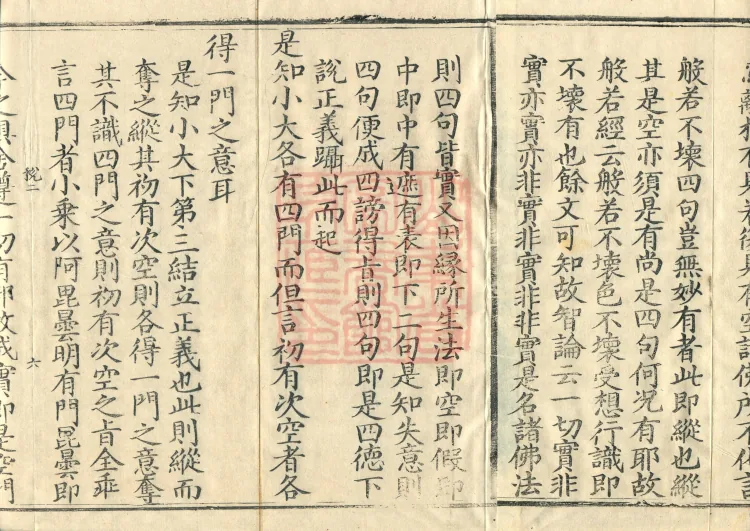 般若不壞四句豈無妙有者此即縱也縱
其是空亦須是有尚是四句何況有耶故
般若經云般若不壞色不壞受想行識即
不壞有也餘文可知故智論云一切實非
實亦實亦非實非實非非實是名諸佛法
則四句皆實又因緣所生法即空即假即
中即中有遮有表即下二句是知失意則
四句便成四謗得旨則四句即是四德下
說正義躡此而起
是知小大各有四門而但言初有次空者各
得一門之意耳
是知小大下第三結立正義也此則縱而
奪之縱其初有次空則各得一門之意奪
其不識四門之意則初有次空之旨全乖
言四門者小乘以阿毘曇明有門毘曇即
六